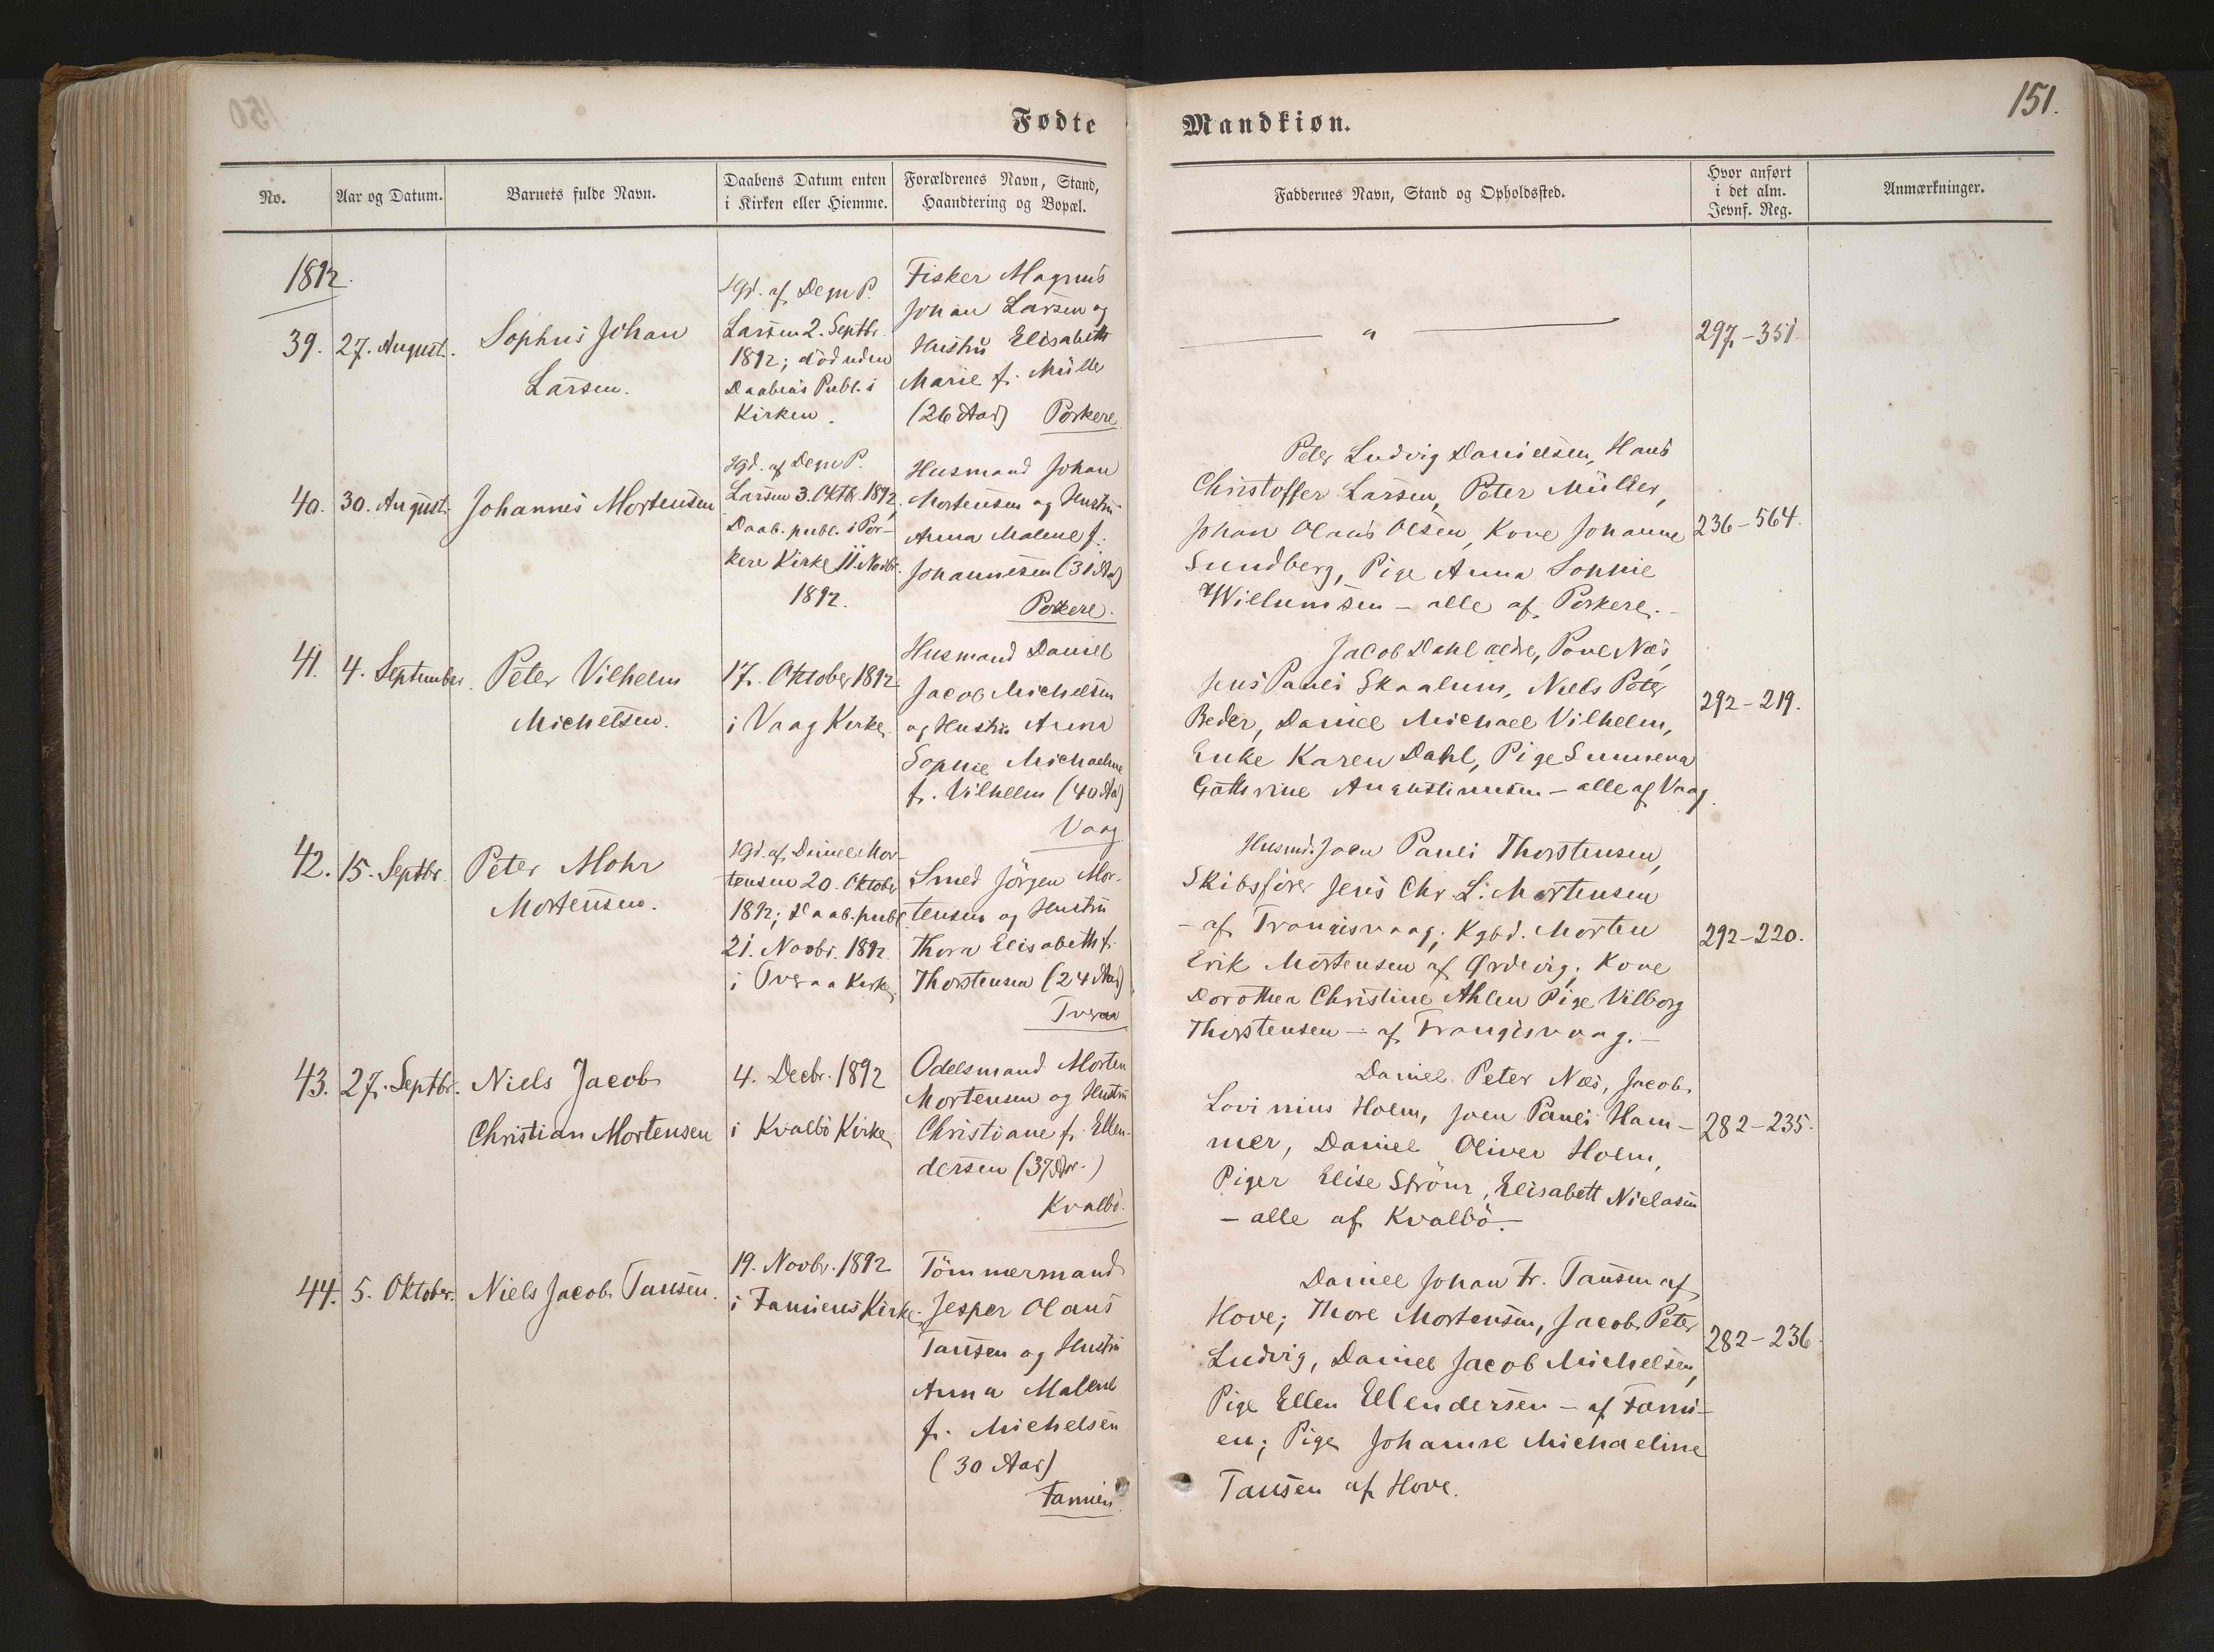 Fødte
Mandkiøn.
151.
No.
Aar og Datum.
Barnets fulde Navn.
Daabens Datum enten
i Kirken eller Hiemme.
Forældrenes Navn, Stand,
Haandtering og Bopæl.
Faddernes Navn, Stand og Opholdssted.
Hvor anført
i det alm.
Jevnf. Reg.
Anmærkninger.
1892.
39.
27. August.
Sophus Johan
Larsen.
Hgd. af Degn P.
Larsen 2. Septbr.
1892; död uden
Daabens Publ. i
Kirken.
Fisker Magnus
Johan Larsen og
Hustru Elisabeth
Marie f. Müller
(26 Aar) Porkere.
"
297-351.
40.
30. August.
Johannes Mortensen
Hgd. af Degn P.
Larsen 3. Oktb. 1892,
Daab. publ. i Por-
kere Kirke 11. Novbr.
1892.
Husmand Johan
Mortensen og Hustru
Anna Malene f.
Johannesen (31 Aar)
Porkere.
Peter Ludvig Danielsen, Hans
Christoffer Larsen, Peter Müller,
Johan Olaus Olsen, Kone Johanne
Sundberg, Pige Anna Sophie
Willumsen - alle af Porkere. -
236-564.
41.
4. September.
Peter Vilhelm
Michelsen.
17. Oktober 1892
i Vaag Kirke.
Husmand Daniel
Jacob Michelsen
og Hustru Anna
Sophie Michaeline
f. Vilhelm (40 Aar)
Vaag
Jacob Dahl ældre, Poul Næs,
Jens Pauli Skaalum, Niels Peter
Beder, Daniel Michael Vilhelm,
Enke Karen Dahl, Pige Sunneva
Cathrine Augustinusen - alle af Vaag.
292-219.
42.
15. Septbr.
Peter Mohr
Mortensen.
Hgd. af Daniel Mor-
tensen 20. Oktober
1892; Daab. publ.
21. Novbr. 1892
i Tveraa Kirke.
Smed Jörgen Mor-
tensen og Hustru
Thora Elisabeth f.
Thorstensen (24 Aar)
Tveraa
Husmd. Joen Pauli Thorstensen,
Skibsförer Jens Chr. L. Mortensen
- af Trangisvaag; Kgbd. Morten
Erik Mortensen af Ördevig; Kone
Dorothea Christine Ahlen Pige Vilborg
Thorstensen - af Trangisvaag. -
292-220.
43.
27. Septbr.
Niels Jacob
Christian Mortensen
4. Decbr. 1892
i Kvalbö Kirke
Odelsmand Morten
Mortensen og Hustru
Christiane f. Ellen-
dersen (37 Aar.)
Kvalbö.
Daniel Peter Næs, Jacob
Lovinius Holm, Joen Pauli Ham-
mer, Daniel Oliver Holm,
Piger Elise Ström, Elisabeth Niclasen
- alle af Kvalbö. -
282-235.
44.
5. Oktober.
Niels Jacob Tausen.
19. Novbr. 1892
i Famiens Kirke.
Tömmermand
Jesper Olaus
Tausen og Hustru
Anna Malene
f. Michelsen
(30 Aar)
Famien.
Daniel Johan Fr. Tausen af
Hove; Thore Mortensen, Jacob Peter
Ludvig, Daniel Jacob Michelsen,
Pige Ellen Ellendersen - af Fami-
en; Pige Johanne Michaeline
Tausen af Hove.
282-236.